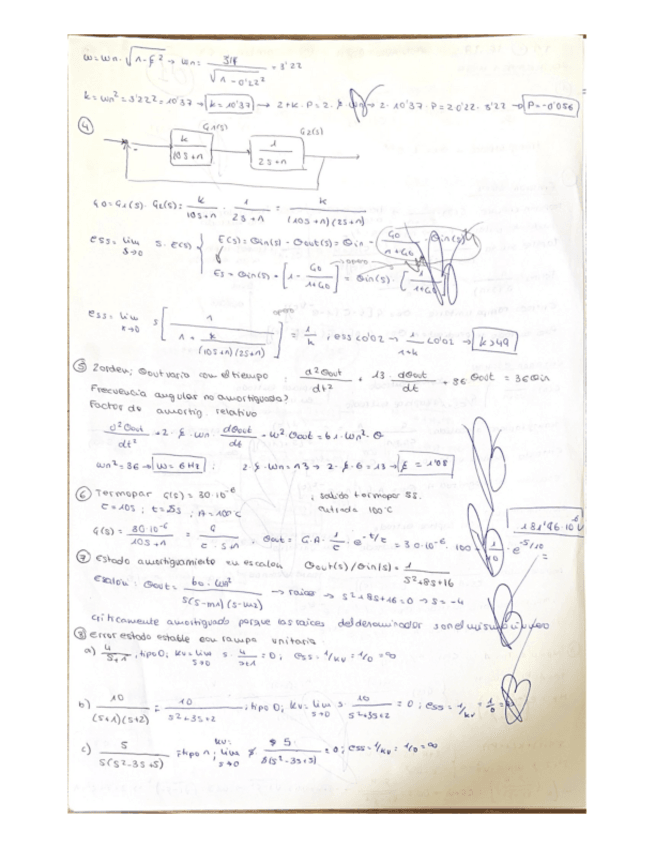 ω=ωn·√(1-ξ²) → ωn= 3'14/√(1-0'22²) =3'22
k=ωn²=3'22²=10'37 → k=10'37 → 2+k·P=2·ξ·ωn → 2·10'37·P=2·0'22·3'22 → P=-0'056
④ G1(s) G2(s)
k/(10s+1) 1/(2s+1)
G0=G1(s)·G2(s)= k/(10s+1) · 1/(2s+1) = k/((10s+1)(2s+1))
ess= lim s→0 s·E(s) { E(s)=θin(s)-θout(s)=θin - G0/(1+G0) · θin(s)
Es=θin(s)·[1- G0/(1+G0)] = θin(s)·[1/(1+G0)]
opero
ess= lim s[1/(1+ k/((10s+1)(2s+1)))] = 1/k, ess<0'02 → 1/(1+k) <0'02 → k>49
opero
⑤ 2orden; θout varia con el tiempo: d²θout/dt² + 13·dθout/dt + 36 θout = 36θin
Frecuencia angular no amortiguada?
Factor de amortig. relativo
d²θout/dt² +2·ξ·ωn·dθout/dt +ω²θout=b1·ωn²·θ
ωn²=36 → ω=6Hz; 2·ξ·ωn=13 → 2·ξ·6=13 → ξ=1'08
⑥ Termopar G(s)=30·10⁻⁶ ; salida termopar 5s.
τ=10s; t=5s; A=100ºC entrada 100ºC
G(s)= 30·10⁻⁶/(10s+1) = G/(τ·s+1) = θout=G·A·1/τ·e^(-t/τ)=30·10⁻⁶·100·1/10·e^(-5/10) =
181'96·10⁻⁶ V
⑦ Estado amortiguamiento en escalon θout(s)/θin(s)= 1/(s²+8s+16)
Escalon: θout= b0·ωn²/(s(s-m1)(s-m2)) → raices → s²+8s+16=0 → s=-4
Criticamente amortiguado porque las raices del denominador son el mismo número
⑧ error estado estable con rampa unitaria
a) 4/(s+1), tipo 0; kv=lim s→0 s·4/(s+1)=0; ess=1/kv=1/0=∞
b) 10/((s+1)(s+2)) = 10/(s²+3s+2); tipo 0; kv=lim s→0 s·10/(s²+3s+2) = 0; ess=1/kv=1/0=∞
c) 5/(s(s²-3s+5)) ; tipo 1; kv= lim s→0 s·5/(s(s²-3s+5)) =0; ess=1/kv=1/0=∞